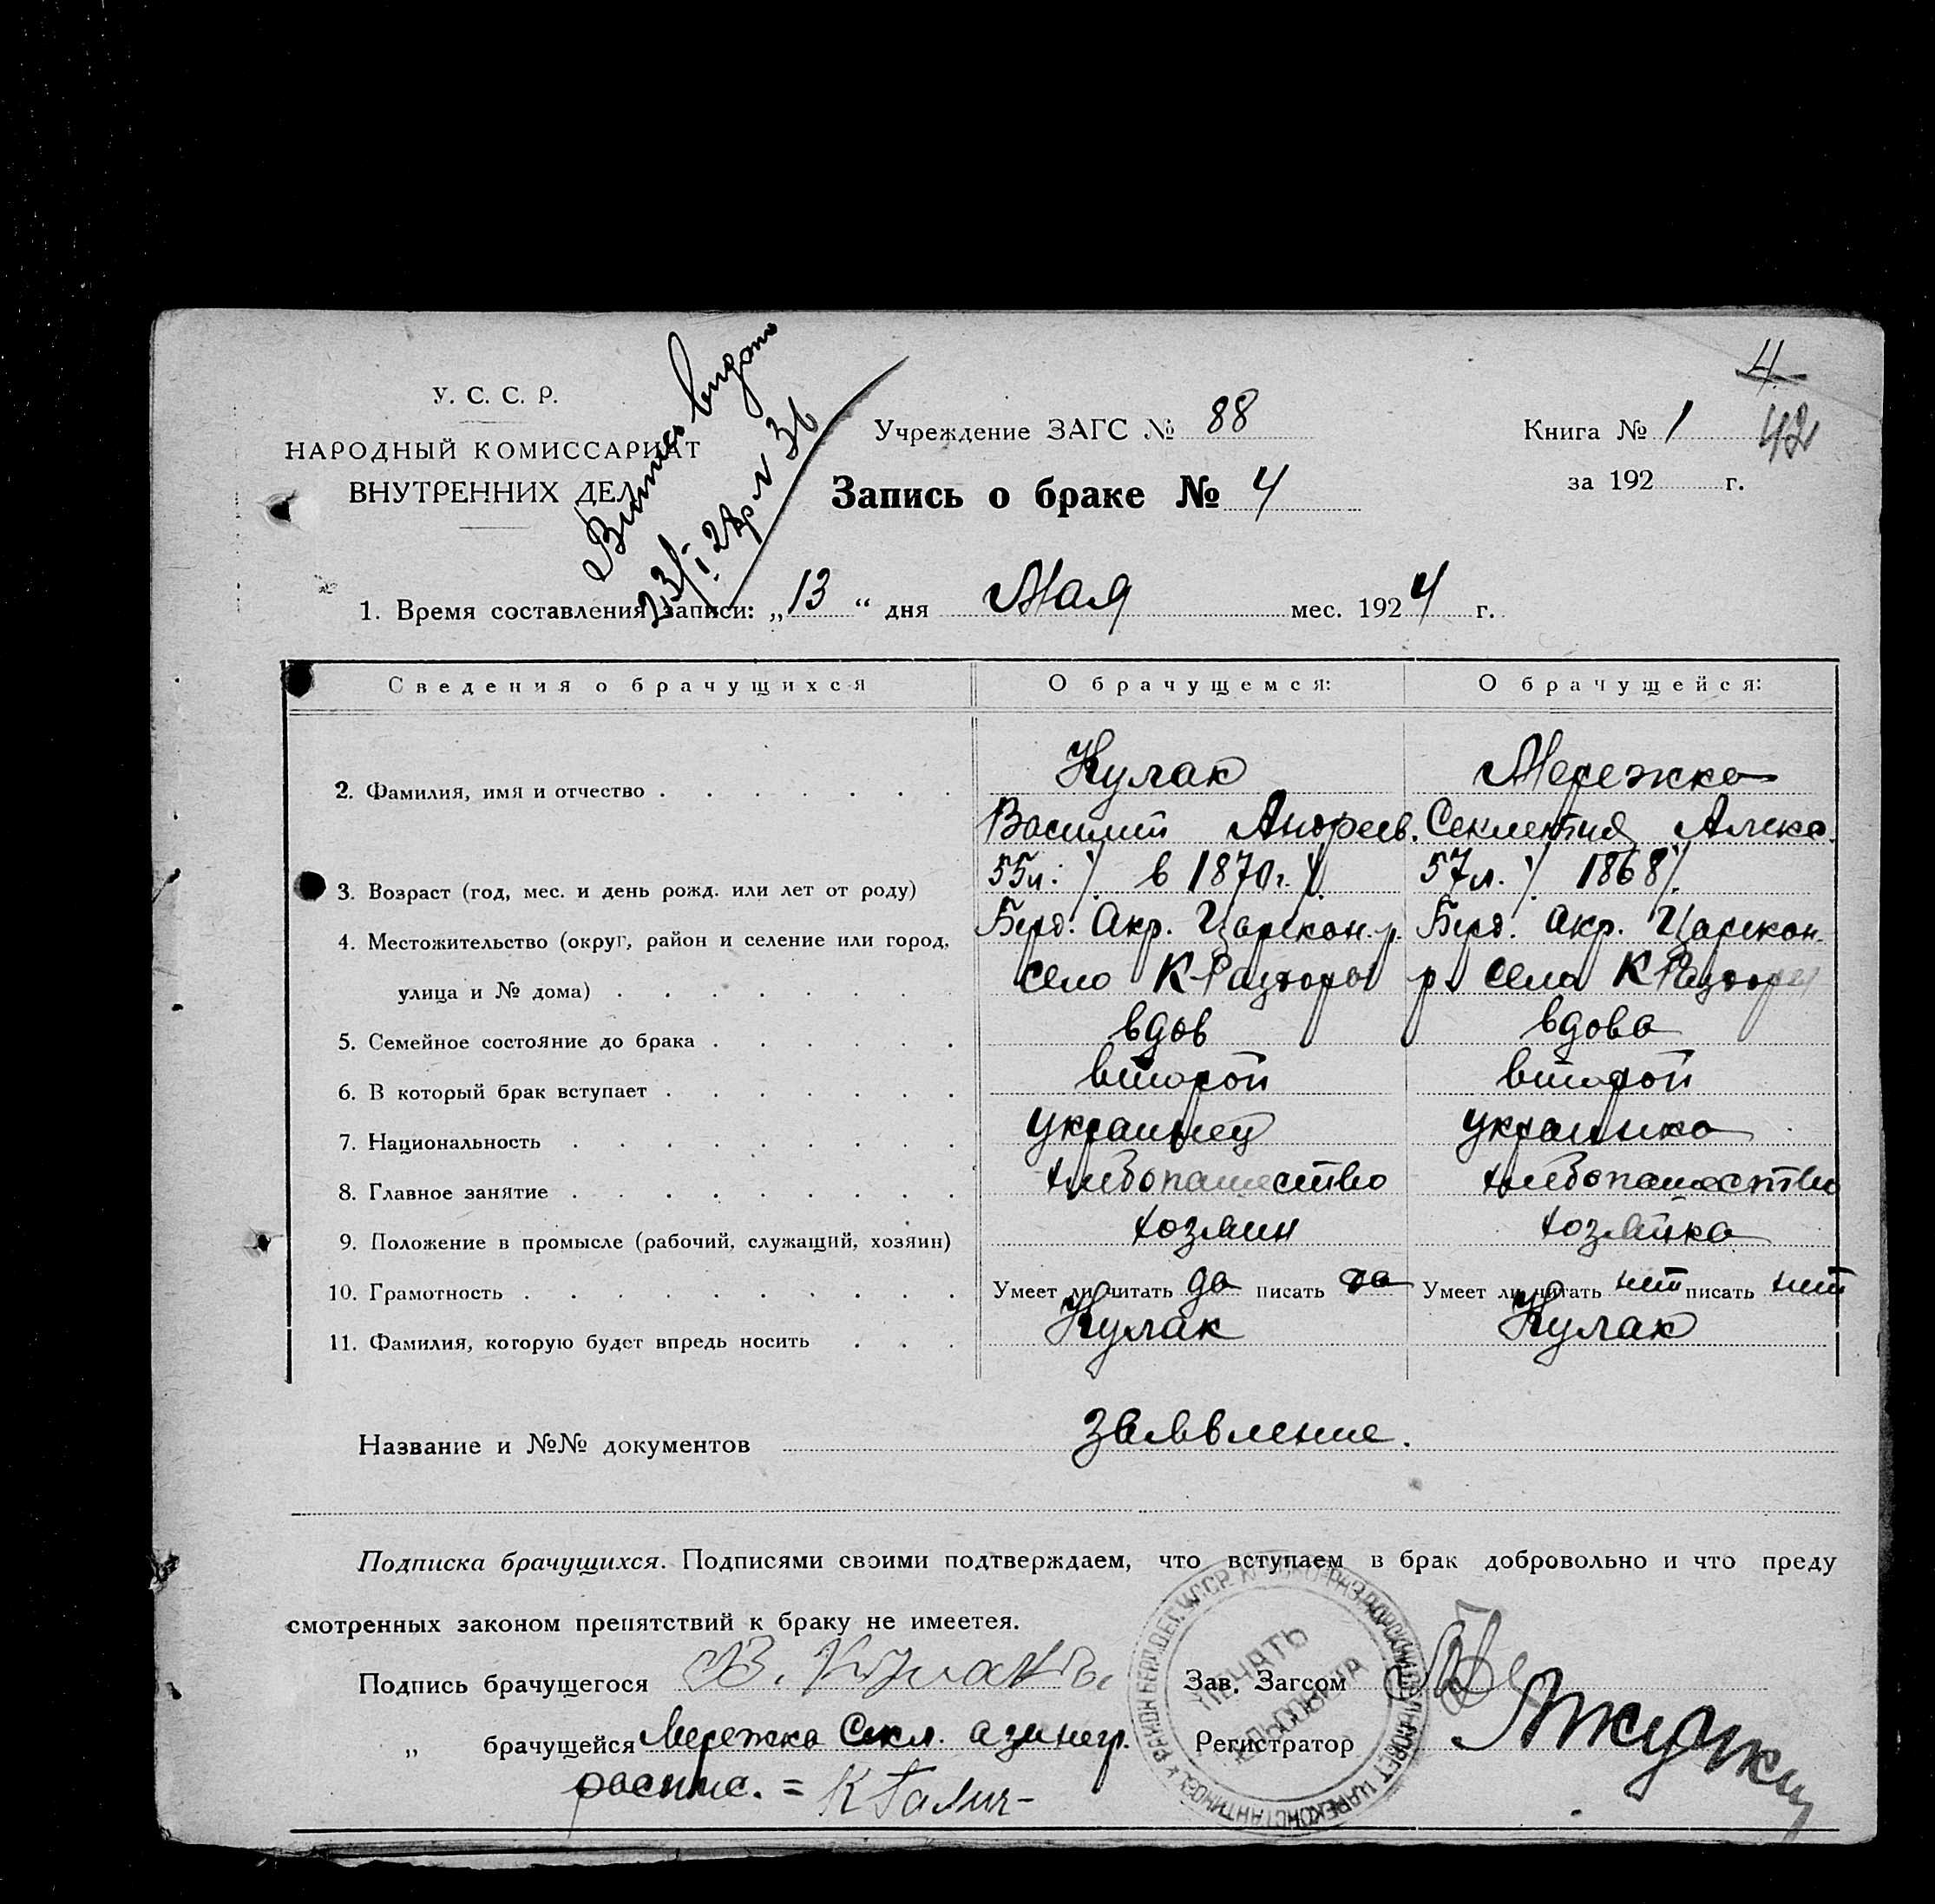 4
42
У. С. С. Р.
НАРОДНЫЙ КОМИССАРИАТ
ВНУТРЕННИХ ДЕЛ
Витяг видано
23/I 36
Учреждение ЗАГС № 88
Запись о браке № 4
Книга № 1
за 192 г.
1. Время составления записи: „13“ дня Мая мес. 1924 г.
Сведения о брачущихся О брачущемся: О брачущейся:
2. Фамилия, имя и отчество Кулак Мережко
Василий Андреев. Секлетия Алекс.
3. Возраст (год, мес. и день рожд. или лет от роду) 55л. в 1870г. 57л. 1868
4. Местожительство (округ, район и селение или город, Берд. Окр. Царекон. р. Берд. Окр. Царекон.
улица и № дома) село К-Раздоры р. села К Раздоры
5. Семейное состояние до брака вдов вдова
6. В который брак вступает второй второй
7. Национальность украинец украинка
8. Главное занятие хлебопашество хлебопашество
9. Положение в промысле (рабочий, служащий, хозяин) хозяин хозяйка
10. Грамотность Умеет ли читать да писать да Умеет ли читать нет писать нет
11. Фамилия, которую будет впредь носить Кулак Кулак
Название и №№ документов Заявление.
Подписка брачущихся. Подписями своими подтверждаем, что вступаем в брак добровольно и что преду
смотренных законом препятствий к браку не имеется.
Подпись брачущегося В. Кулак
Зав. Загсом
„ брачущейся Мережко Секл. а за негр.
Регистратор
роспис. =
ПЕЧАТЬ
СЕЛЬСОВЕТА